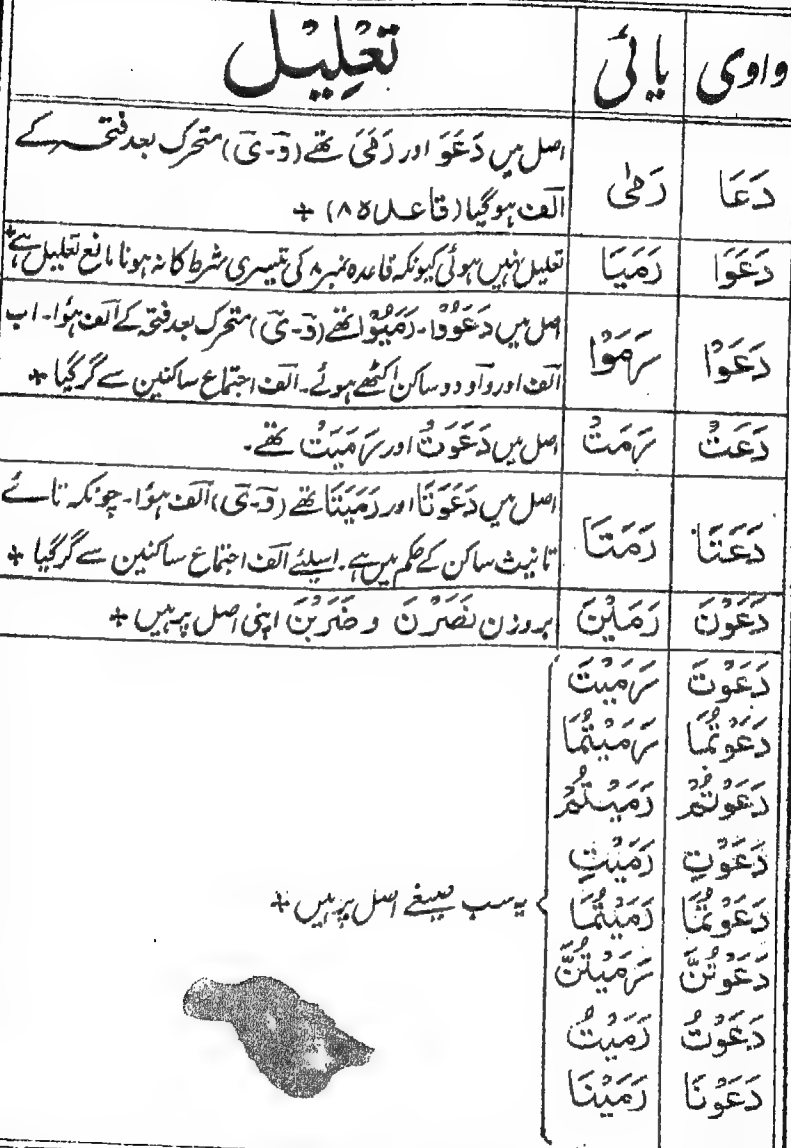 واوی یائی تعلیل
دَعَا رَمٰی اصل میں دَعَوَ اور رَمَیَ تھے (وَ-یَ) متحرک بعد فتحہ کے
الف ہوگیا (قاعدہ ۸) +
دَعَوَا رَمَیَا تعلیل نہیں ہوئی کیونکہ قاعدہ نمبر ۸ کی تیسری شرط کا نہ ہونا مانع تعلیل ہے +
دَعَوْا رَمَوْا اصل میں دَعَوُوْا۔ رَمَیُوْا تھے (وَ-یَ) متحرک بعد فتحہ کے الف ہوٗا۔ اب
الف اور واو دو ساکن اکٹھے ہوئے۔ الف اجتماع ساکنین سے گر گیا +
دَعَتْ رَمَتْ اصل میں دَعَوَتْ اور رَمَیَتْ تھے۔
دَعَتَا رَمَتَا اصل میں دَعَوَتَا اور رَمَیَتَا تھے (وَ-یَ) الف ہوٗا۔ چونکہ تائے
تانیث ساکن کے حکم میں ہے۔ اسلئے الف اجتماع ساکنین سے گر گیا +
دَعَوْنَ رَمَیْنَ بروزن نَصَرْنَ و ضَرَبْنَ اپنی اصل پر ہیں +
دَعَوْتَ رَمَیْتَ
دَعَوْتُمَا رَمَیْتُمَا
دَعَوْتُمْ رَمَیْتُمْ
دَعَوْتِ رَمَیْتِ
دَعَوْتُمَا رَمَیْتُمَا یہ سب صیغے اصل پر ہیں +
دَعَوْتُنَّ رَمَیْتُنَّ
دَعَوْتُ رَمَیْتُ
دَعَوْنَا رَمَیْنَا